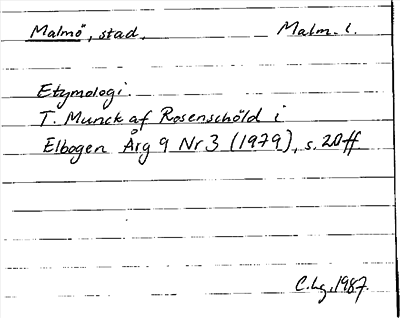 Malmö, stad. Malm. l.
Etymologi.
T. Munck af Rosenschöld i
Elbogen Årg 9 Nr 3 (1979), s. 20ff.
C.Lg. 1987.